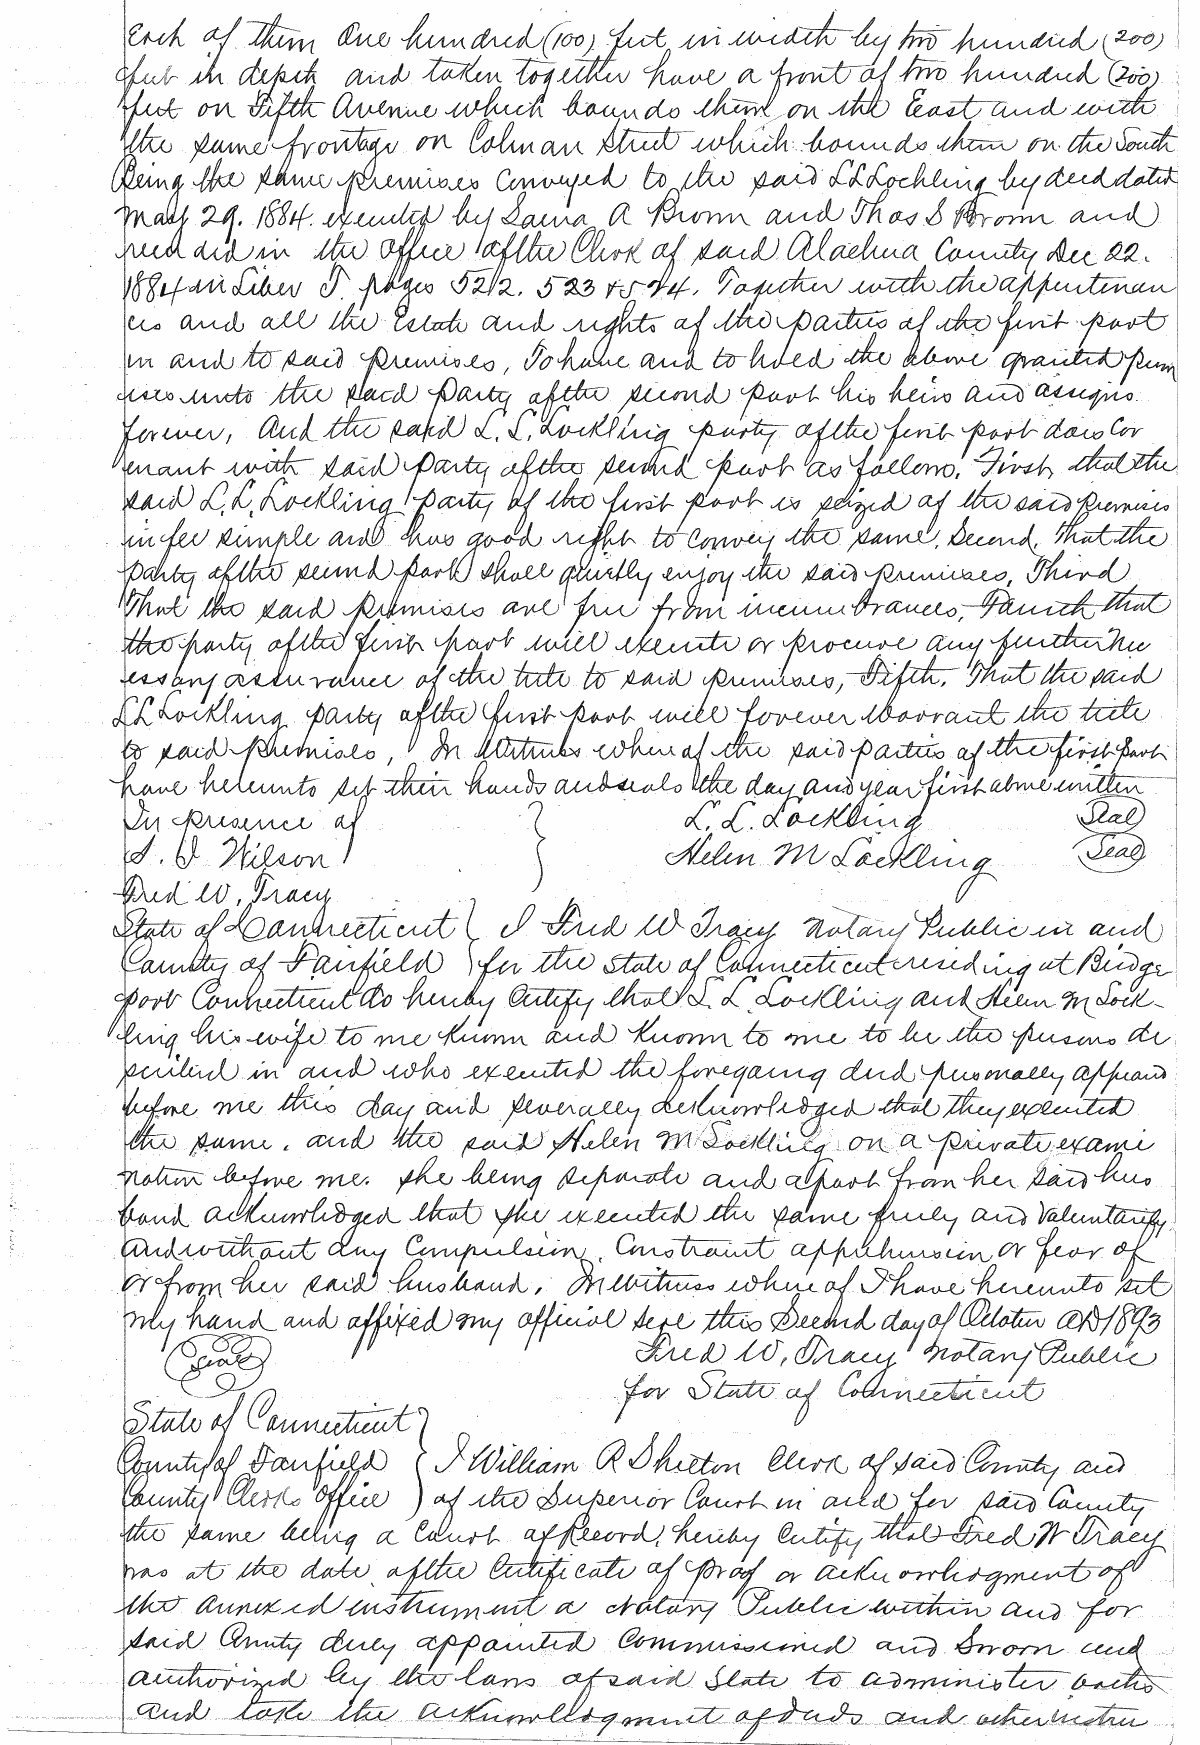 Each of them One hundred (100) feet in width by two hundred (200)
feet in depth and taken together have a front of two hundred (200)
feet on Fifth Avenue which bounds them on the East and with
the same frontage on Colman Street which bounds them on the South
Being the same premises conveyed to the said L L Lockling by deed dated
May 29. 1884. executed by Laura A Brown and Thos S Brown and
recorded in the office of the Clerk of said Alachua County Dec 22.
1884 in Liber T. pages 522. 523 & 524. Together with the appurtenan
ces and all the Estate and rights of the parties of the first part
in and to said premises, To have and to hold the above granted prem
ises unto the said party of the second part his heirs and assigns
forever, And the said L. L. Lockling party of the first part does Cov
enant with said party of the second part as follows. First, that the
said L. L. Lockling party of the first part is seized of the said premises
in fee simple and has good right to convey the same. Second, That the
party of the second part shall quietly enjoy the said premises, Third
That the said premises are free from incumbrances, Fourth that
the party of the first part will execute or procure any further nec
essary assurance of the title to said premises, Fifth. That the said
L L Lockling party of the first part will forever warrant the title
to said premises, In Witness where of the said parties of the first part
have hereunto set their hands and seals the day and year first above written
In presence of } L. L. Lockling Seal
Wilson Helen M Lockling Seal
Fred W. Tracy
State of Connecticut } I Fred W Tracy Notary Public in and
County of Fairfield } for the State of Connecticut residing at Bridge
port Connecticut do hereby Certify that L. L. Lockling and Helen M Lock-
ling his wife to me known and known to me to be the persons de
scribed in and who executed the foregoing deed personally appeared
before me this day and severally acknowledged that they executed
the same. and the said Helen M Lockling on a private exami
nation before me. she being separate and apart from her said hus
band acknowledged that she executed the same freely and Voluntarily
and without any Compulsion, Constraint apprehension or fear of
or from her said husband. In witness where of I have hereunto set
my hand and affixed my official seal this Second day of October AD 1893
Seal Fred W. Tracy Notary Public
for State of Connecticut
State of Connecticut }
County of Fairfield { I William R Shelton Clerk of said County and
County Clerks Office ) of the Superior Court in and for said County
the same being a Court of Record, hereby Certify that Fred W Tracy
was at the date of the Certificate of proof or acknowledgment of
the annexed instrument a Notary Public within and for
said County duly appointed Commissioned and Sworn and
authorized by the laws of said State to administer oaths
and take the acknowledgment of deeds and other instru